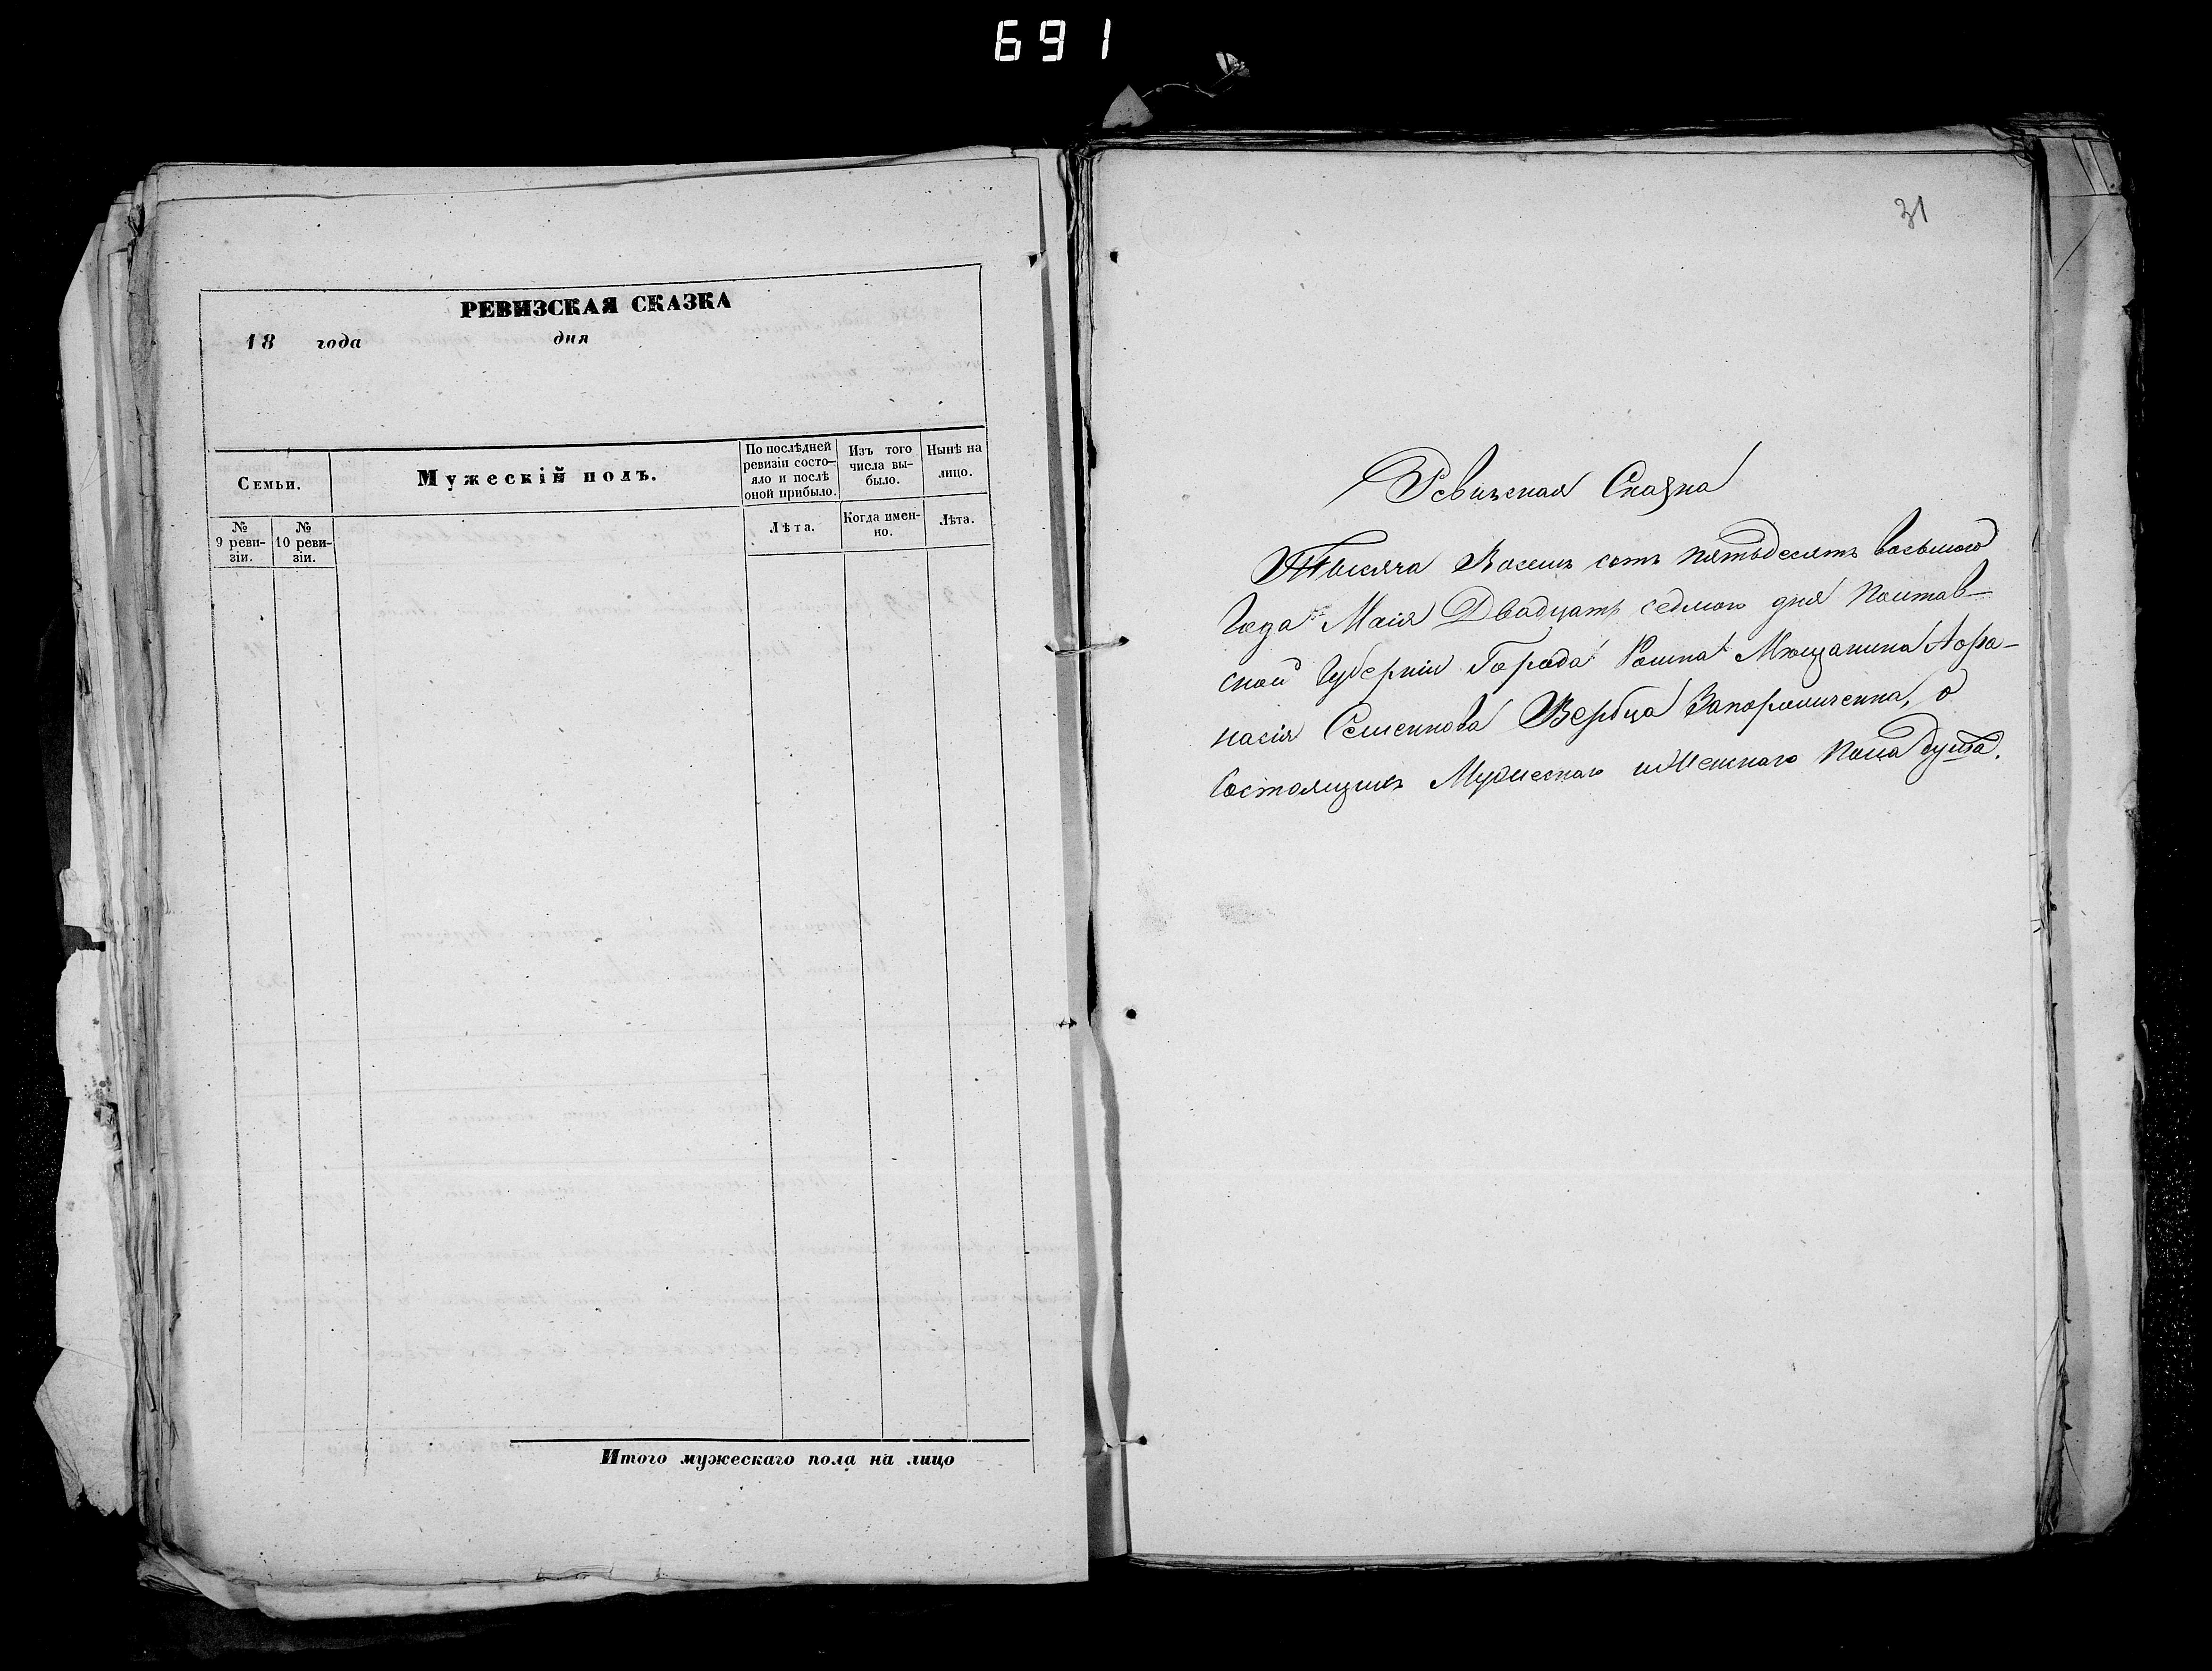 691
РЕВИЗСКАЯ СКАЗКА
18 года дня
Семьи.
Мужескій полъ.
По послѣдней
ревизіи состо-
яло и послѣ
оной прибыло.
Изъ того
числа вы-
было.
Нынѣ на
лицо.
№
9 реви-
зіи.
№
10 реви-
зіи.
Лѣта.
Когда имен-
но.
Лѣта.
Итого мужескаго пола на лицо
31
Ревизская Сказка
Тысяча Восемь сотъ пятьдесятъ восьмого
Года Маія Двадцать седмого дня Полтав-
ской Губерніи Города Ромна Мѣщанина Афа-
насія Семенова Вербца Запорожченка, о
Состоящихъ Мужескаго и Женскаго пола душа.